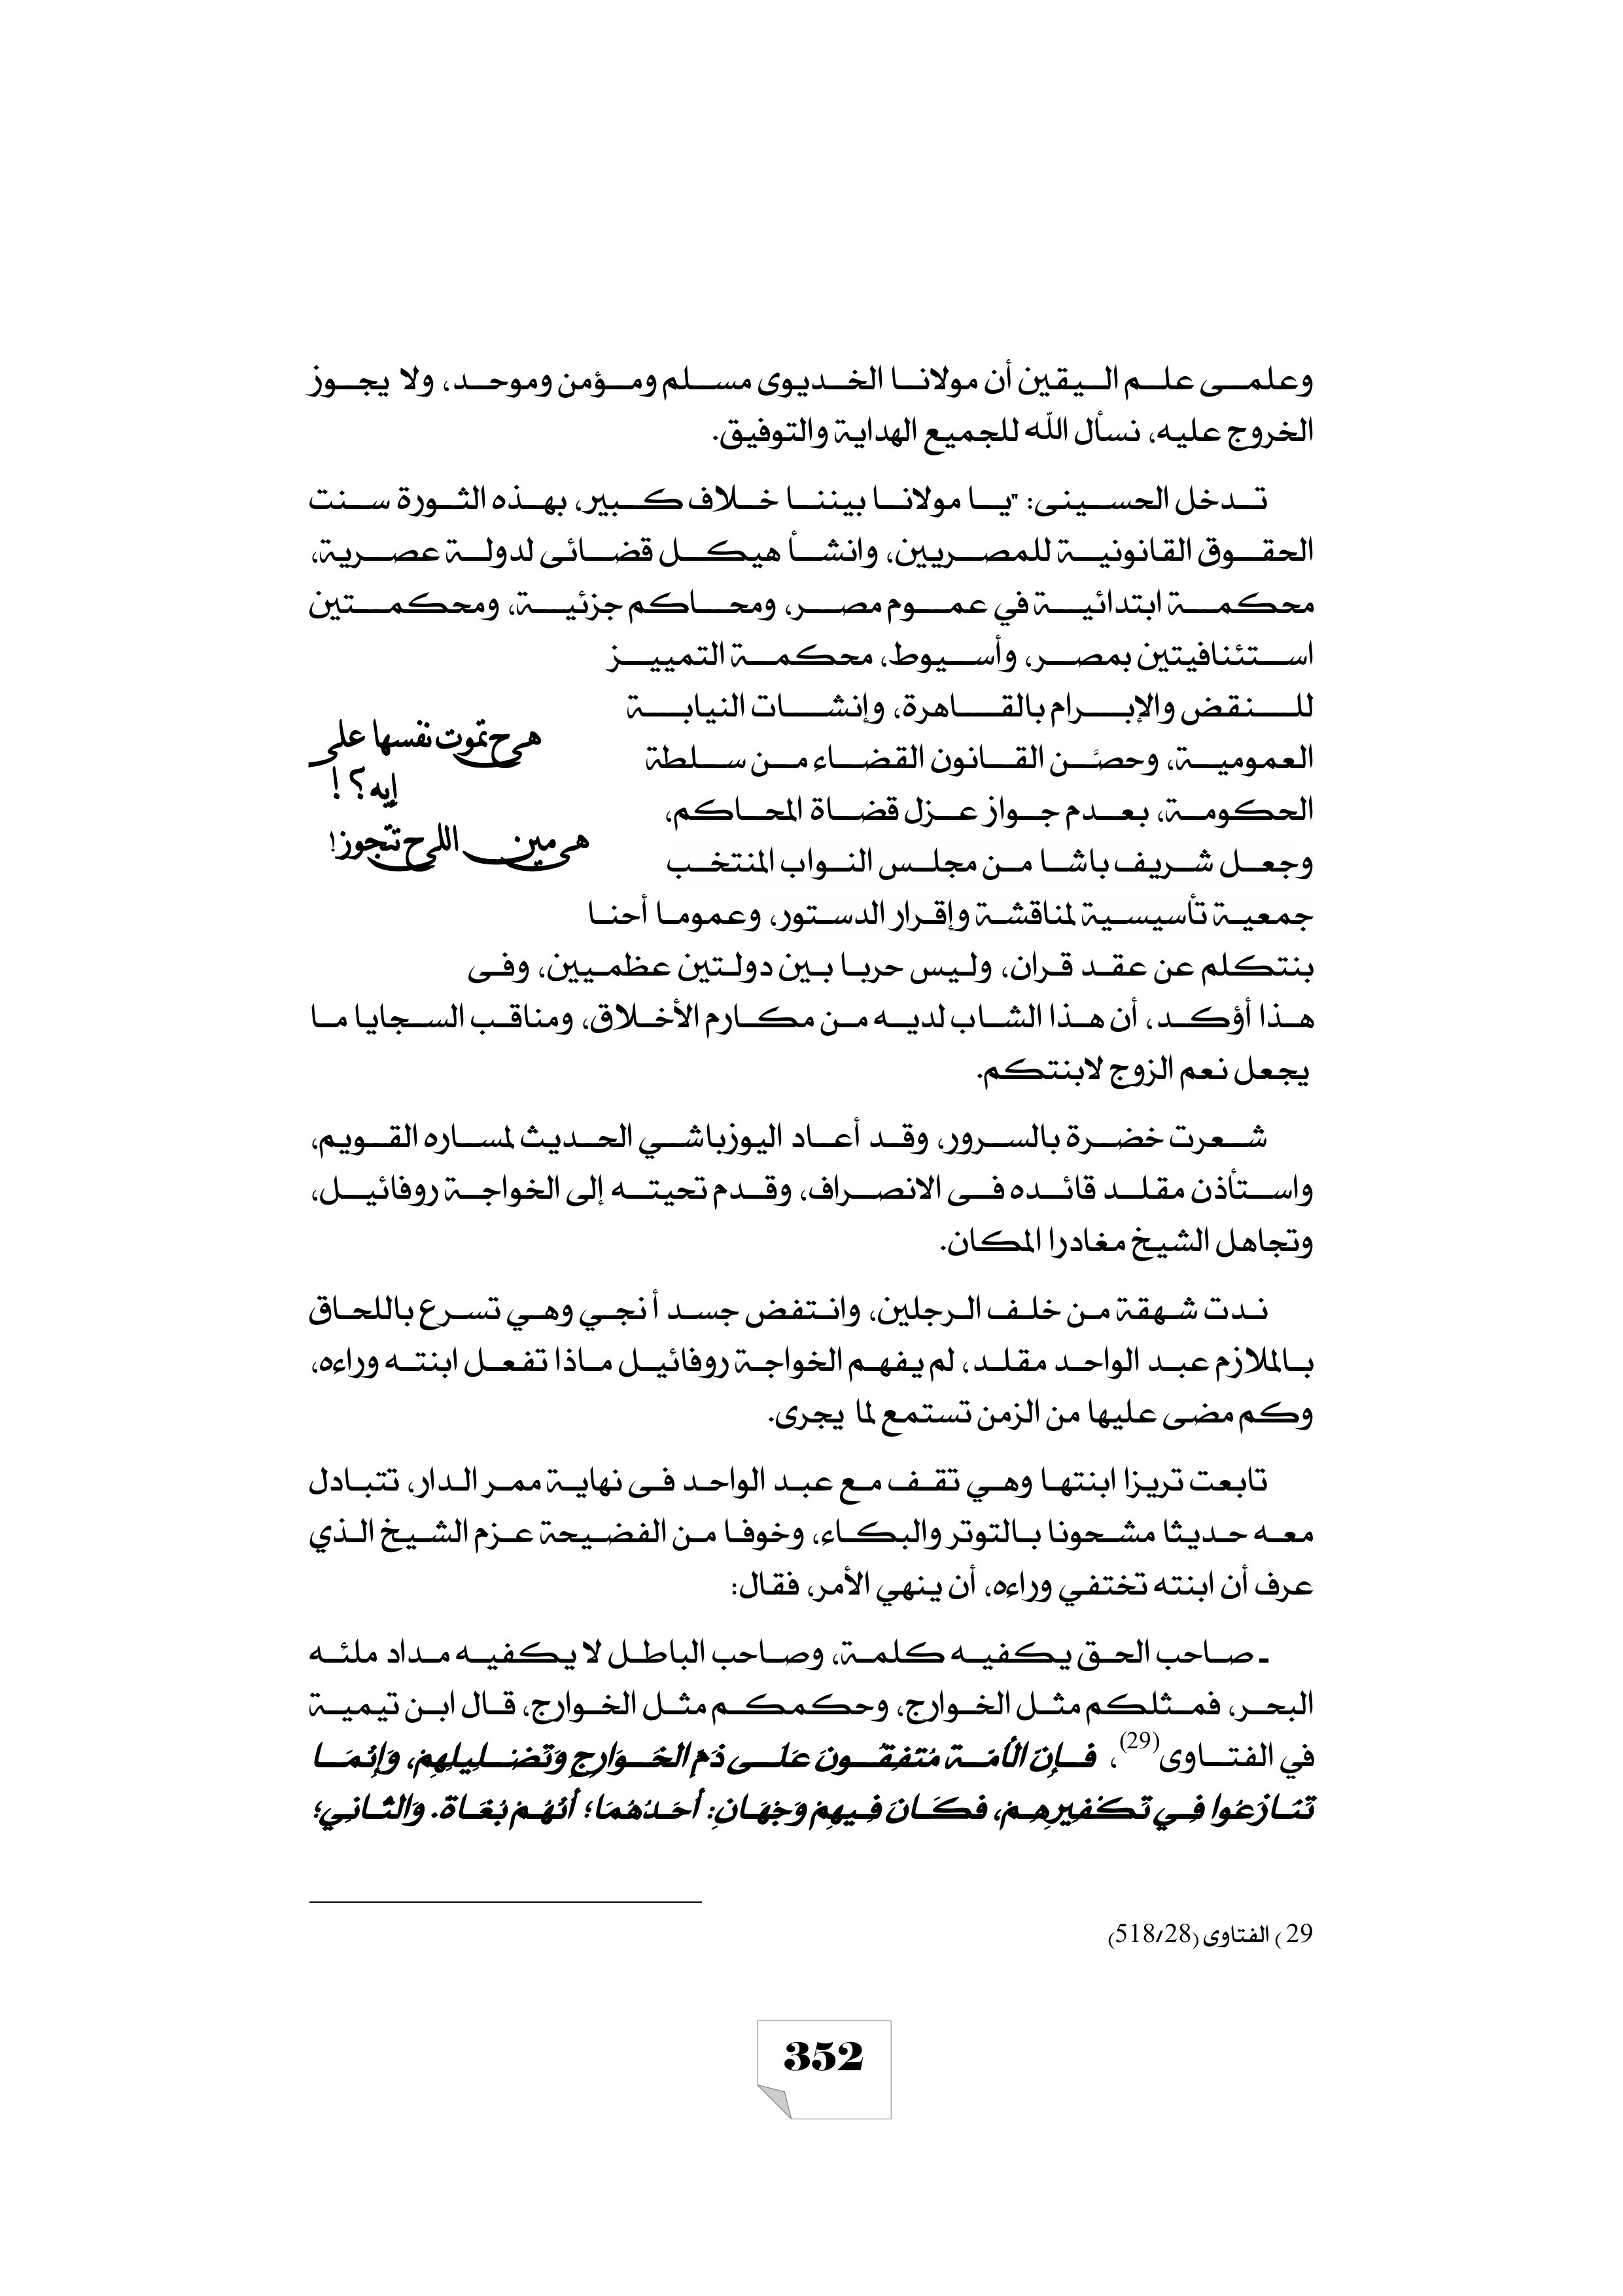 وعلمى علم اليقين أن مولانا الخديوى مسلم ومؤمن وموحد، ولا يجوز
الخروج عليه، نسأل الله للجميع الهداية والتوفيق.
تدخل الحسينى: "يا مولانا بيننا خلاف كبير، بهذه الثورة سنت
الحقوق القانونية للمصريين، وانشأ هيكل قضائى لدولة عصرية،
محكمة ابتدائية في عموم مصر، ومحاكم جزئية، ومحكمتين
استئنافيتين بمصر، وأسيوط، محكمة التمييز
للنقض والإبرام بالقاهرة، وإنشات النيابة
العمومية، وحصَّن القانون القضاء من سلطة
الحكومة، بعدم جواز عزل قضاة المحاكم،
وجعل شريف باشا من مجلس النواب المنتخب
جمعية تأسيسية لمناقشة وإقرار الدستور، وعموما أحنا
بنتكلم عن عقد قران، وليس حربا بين دولتين عظميين، وفى
هذا أؤكد، أن هذا الشاب لديه من مكارم الأخلاق، ومناقب السجايا ما
يجعل نعم الزوج لابنتكم.
هى ح تموت نفسها على
إيه؟!
هى مين اللى ح تتجوز!
شعرت خضرة بالسرور، وقد أعاد اليوزباشي الحديث لمساره القويم،
واستأذن مقلد قائده فى الانصراف، وقدم تحيته إلى الخواجة روفائيل،
وتجاهل الشيخ مغادرا المكان.
ندت شهقة من خلف الرجلين، وانتفض جسد أنجي وهي تسرع باللحاق
بالملازم عبد الواحد مقلد، لم يفهم الخواجة روفائيل ماذا تفعل ابنته وراءه،
وكم مضى عليها من الزمن تستمع لما يجرى.
تابعت تريزا ابنتها وهي تقف مع عبد الواحد فى نهاية ممر الدار، تتبادل
معه حديثا مشحونا بالتوتر والبكاء، وخوفا من الفضيحة عزم الشيخ الذي
عرف أن ابنته تختفي وراءه، أن ينهي الأمر، فقال:
ـ صاحب الحق يكفيه كلمة، وصاحب الباطل لا يكفيه مداد ملئه
البحر، فمثلكم مثل الخوارج، وحكمكم مثل الخوارج، قال ابن تيمية
في الفتاوى(29)، فَإِنّ الأُمّة مُتفِقُونَ عَلَى ذَمّ الخَوَارِجِ وَتَضْلِيلِهِمْ، وَإِنّمَا
تَنَازَعُوا فِي تَكْفِيرِهِمْ، فكَانَ فِيهِمْ وَجْهَانِ: أحَدُهُمَا؛ أنّهُمْ بُغَاة. وَالثانِي؛
29 ) الفتاوى (518/28)
352